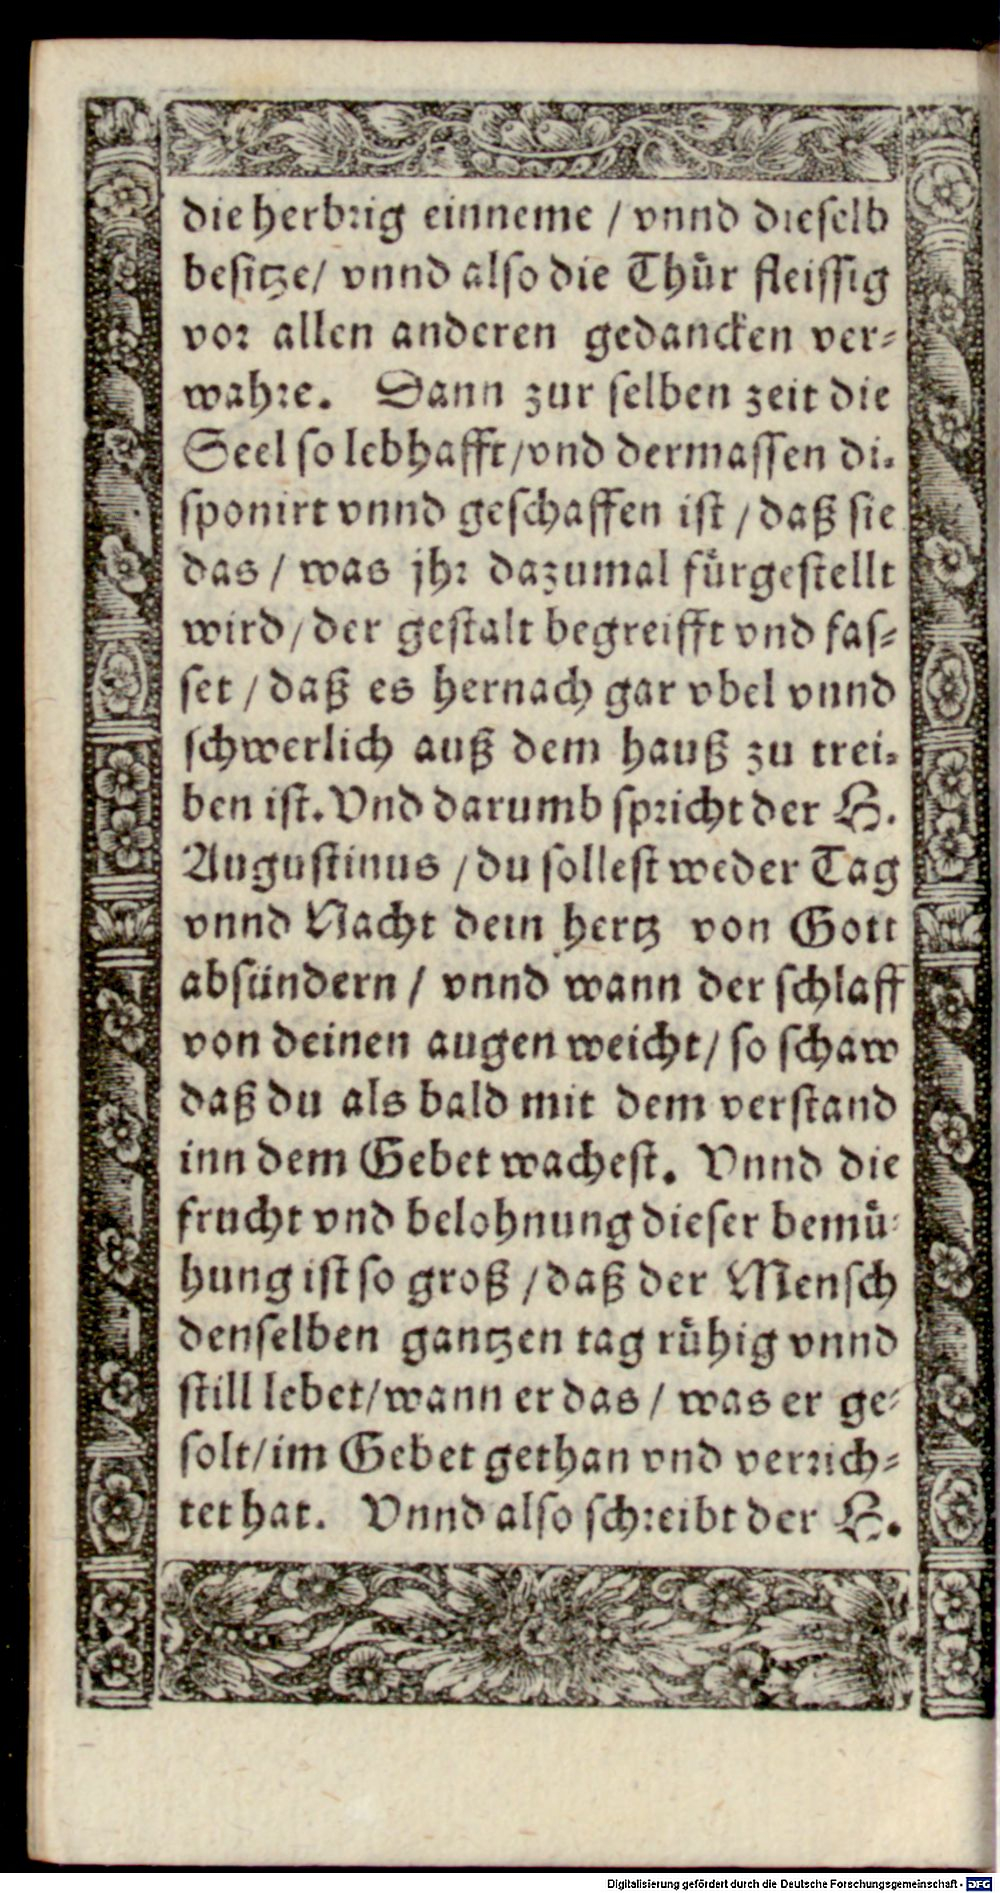 die herbrig einneme / vnnd dieselb
besitze/ vnnd also die Thür fleissig
vor allen anderen gedancken ver-
wahre. Dann zur selben zeit die
Seel so lebhafft/vnd dermassen di-
sponirt vnnd geschaffen ist / daß sie
das / was jhr dazumal fürgestellt
wird/ der gestalt begreifft vnd fas-
set / daß es hernach gar vbel vnnd
schwerlich auß dem hauß zu trei-
ben ist. Vnd darumb spricht der H.
Augustinus / du sollest weder Tag
vnnd Nacht dein hertz von Gott
absündern / vnnd wann der schlaff
von deinen augen weicht/ so schaw
daß du als bald mit dem verstand
inn dem Gebet wachest. Vnnd die
frucht vnd belohnung dieser bemü-
hung ist so groß / daß der Mensch
denselben gantzen tag rühig vnnd
still lebet/wann er das / was er ge-
solt/im Gebet gethan vnd verrich-
tet hat. Vnnd also schreibt der H.
Digitalisierung gefördert durch die Deutsche Forschungsgemeinschaft - DFG